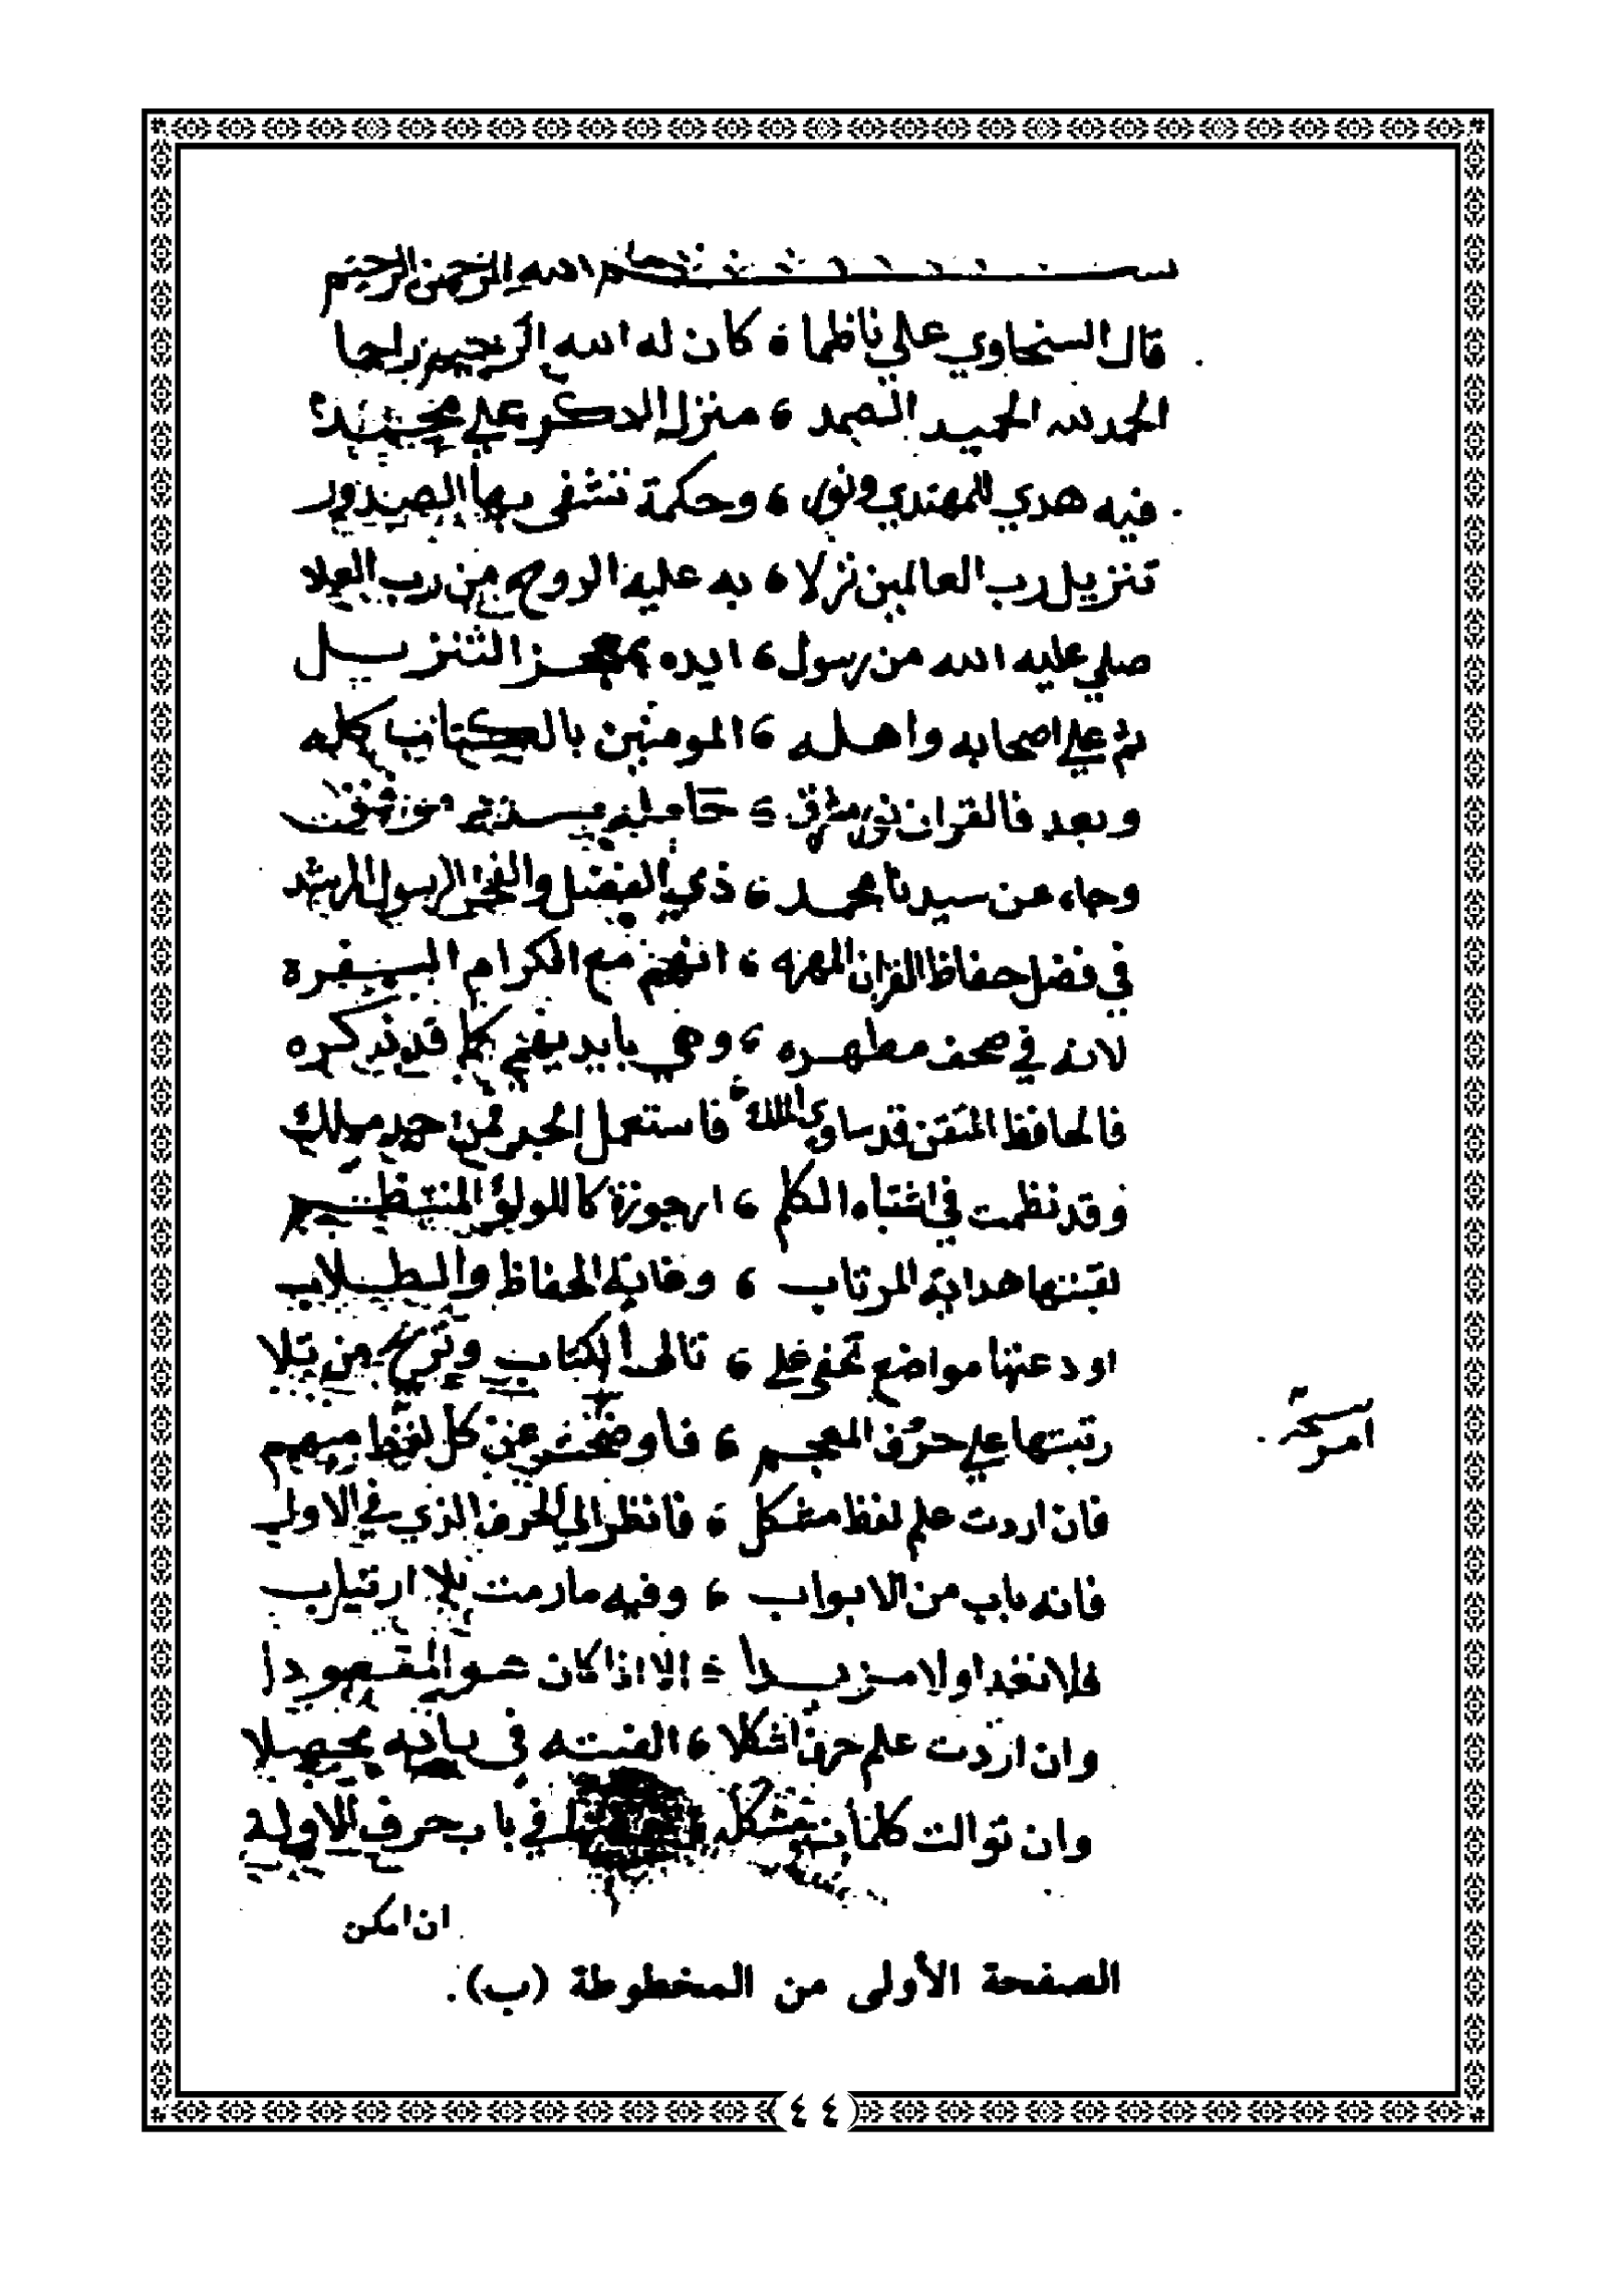 بسم الله الرحمن الرحيم
قال السخاوي علي ناظما ، كان له الله الرحيم راحما
الحمد لله الحميد الصمد ، منزل الدكر علي محمد
فيه هدي للمهتدي ونور ، وحكمة تشفى بها الصدور
تنزيل رب العالمين نزلا ، به عليه الروح من رب العلا
صلي عليه الله من رسول ، ايده بمعجز التنزيل
ثم علي اصحابه واهله ، المومنين بالكتاب كله
وبعد فالقران نور مشرق ، حامله
وجاء عن سيدنا محمد ، ذي الفضل والفخر الرسول المرشد
في فضل حفاظ القران المهره ، انهم مع الكرام السفره
لانه في صحف مطهره ، وهي بايديهم كما قد ذكره
فالحافظ المتقن قد ساوى الملك ، فاستعمل الجد فمن جد ملك
وقد نظمت في اشتباه الكلم ، ارجوزة كاللولؤ المنتظم
لقبتها هداية المرتاب ، وغاية الحفاظ والطلاب
اودعتها مواضع تخفى علي ، تالى الكتاب وتريح من تلا
رتبتها علي حرف المعجم ، فاوضحت عن كل لفظ مبهم
نسخة
امر
فان اردت علم لفظ مشكل ، فانظر الي الحرف الذي في الاول
فانه باب من الابواب ، وفيه مارمت بلا ارتياب
فلا تعد اولا مزيدا ، الا اذا كان هو المقصودا
وان اردت علم حرف اشكلا ، الفيته في بابه محصلا
وان توالت كلمات مشكله في باب حرف الاوله
ان امكن
الصفحة الأولى من المخطوطة (ب).
٤٤